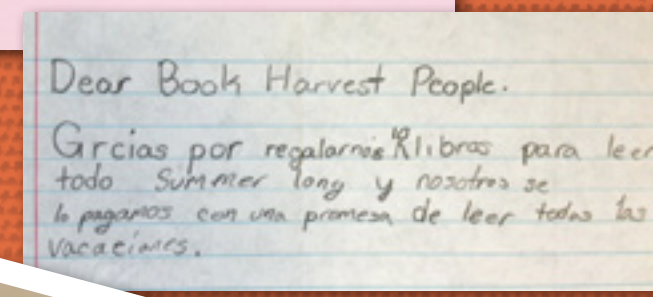 Dear Book Harvest People.
Grcias por regalarnos 10 libros para leer
todo Summer long y nosotros se
lo pagamos con una promesa de leer todas las
vacaciones.